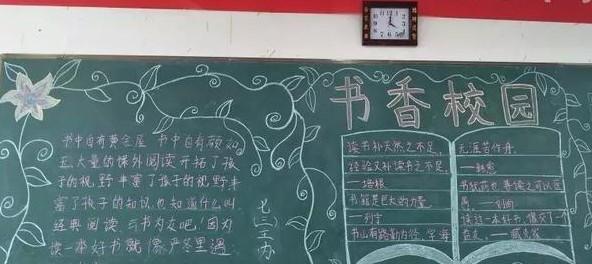 书香校园
书中自有黄金屋 书中自有颜如
玉大量的课外阅读开拓了孩
子的视野丰富了孩子的视野丰
富了孩子的知识也知道什么叫
经典阅读 与书为友吧！因为
读一本好书就像严冬里遇
七三办
读书补天然之不足，
经验又补读书之不足，
—培根
书籍是巨大的力量
—列宁
书山有路勤为径，学海
无涯苦作舟，
—韩愈
书犹药也，善读之可以医
愚，—刘向
读过一本好书，像交了一个
益友，—臧克家